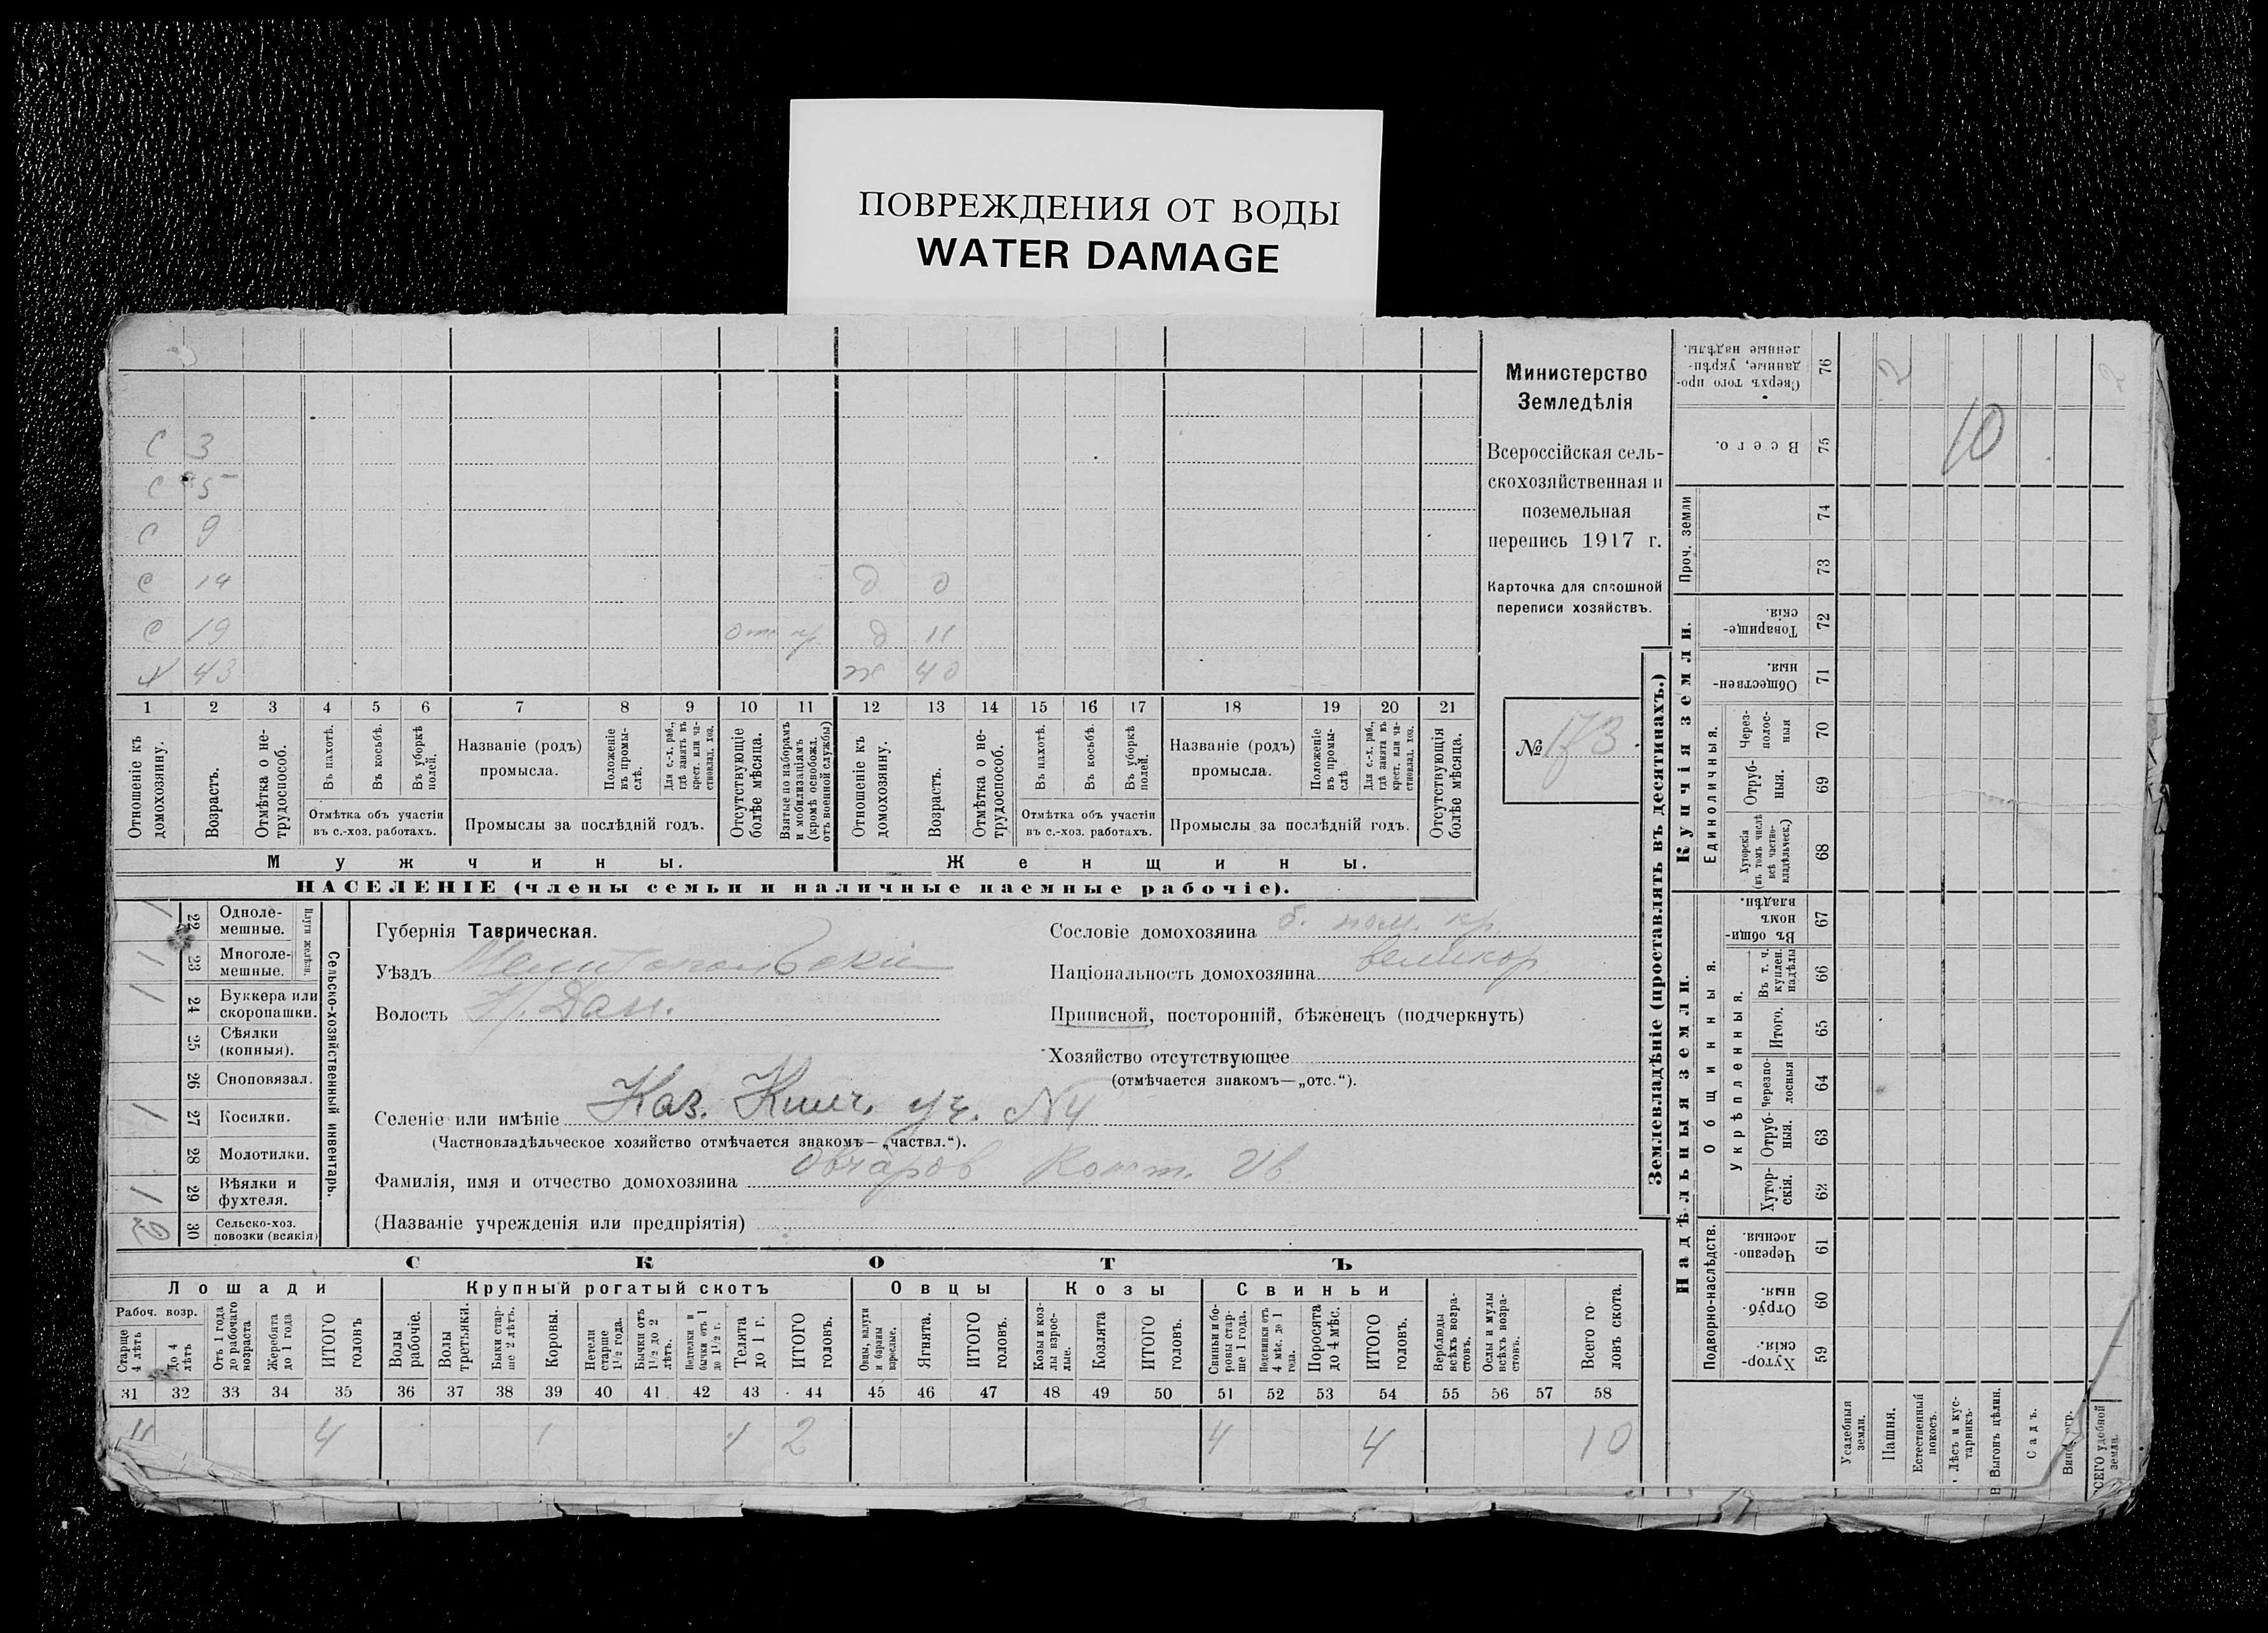 ПОВРЕЖДЕНИЯ ОТ ВОДЫ
WATER DAMAGE
Министерство
Земледѣлія
Всероссійская сель-
скохозяйственная и
поземельная
перепись 1917 г.
Карточка для сплошной
переписи хозяйствъ.
№ 173.
С 3
С 5
С 9
С 14 д 0
С 19 д 11
Х 43 ж 40
1 2 3 4 5 6 7 8 9 10 11 12 13 14 15 16 17 18 19 20 21
Отношеніе къ домохозяину.
Возрастъ.
Отмѣтка о не-трудоспособ.
Въ пахотѣ.
Въ косьбѣ.
Въ уборкѣ полей.
Отмѣтка объ участіи
въ с.-хоз. работахъ.
Названіе (родъ)
промысла.
Положеніе въ промы-слѣ.
Для с.-х. раб., гдѣ занятъ въ крест. или ча-стновлад. хоз.
Промыслы за послѣдній годъ.
Отсутствующіе болѣе мѣсяца.
Взятые по наборамъ и мобилизаціямъ (кромѣ освобожд. отъ военной службы)
Отношеніе къ домохозяину.
Возрастъ.
Отмѣтка о не-трудоспособ.
Въ пахотѣ.
Въ косьбѣ.
Въ уборкѣ полей.
Отмѣтка объ участіи
въ с.-хоз. работахъ.
Названіе (родъ)
промысла.
Положеніе въ промы-слѣ
Для с.-х. раб., гдѣ занята въ крест. или ча-стновлад. хоз.
Промыслы за послѣдній годъ.
Отсутствующія болѣе мѣсяца.
Мужчины. Женщины.
НАСЕЛЕНІЕ (члены семьи и наличные наемные рабочіе).
Сельско-хозяйственный инвентарь.
Плуги желѣзн.
1 22 Одноле-мешные.
1 23 Многоле-мешные.
1 24 Буккера или скоропашки.
25 Сѣялки (конныя).
26 Сноповязал.
1 27 Косилки.
28 Молотилки.
1 29 Вѣялки и фухтеля.
2 30 Сельско-хоз. повозки (всякія)
Губернія Таврическая.
Уѣздъ Мелитопольскій
Волость Н. Дан.
Сословіе домохозяина б. пом. кр.
Національность домохозяина великор
Приписной, посторонній, бѣженецъ (подчеркнуть)
Хозяйство отсутствующее
(отмѣчается знакомъ—„отс.“).
Селеніе или имѣніе Каз. Кишч. уч. №4
(Частновладѣльческое хозяйство отмѣчается знакомъ—„частвл.“).
Фамилія, имя и отчество домохозяина Овчаров Конст. Ив
(Названіе учрежденія или предпріятія)
СКОТЪ
Лошади Крупный рогатый скотъ Овцы Козы Свиньи
Рабоч. возр.
Старше 4 лѣтъ
До 4 лѣтъ
Отъ 1 года до рабочаго возраста
Жеребята до 1 года
ИТОГО головъ
Волы рабочіе.
Волы третьяки.
Быки стар-ше 2 лѣтъ.
Коровы.
Нетели старше 1½ года.
Бычки отъ 1½ до 2 лѣтъ.
Подтелки и бычки отъ 1 до 1½ г.
Телята до 1 г.
ИТОГО головъ.
Овцы, валухи и бараны взрослые.
Ягнята.
ИТОГО головъ.
Козы и коз-лы взрос-лые.
Козлята
ИТОГО головъ.
Свиньи и бо-ровы стар-ше 1 года.
Подсвинки отъ 4 мѣс. до 1 года.
Поросята до 4 мѣс.
ИТОГО головъ.
Верблюды всѣхъ возра-стовъ.
Ослы и мулы всѣхъ возра-стовъ.
Всего го-ловъ скота.
31 32 33 34 35 36 37 38 39 40 41 42 43 44 45 46 47 48 49 50 51 52 53 54 55 56 57 58
4 4 1 1 2 4 4 10
Землевладѣніе (проставлять въ десятинахъ.)
Надѣльныя земли.
Купчія земли.
Проч. земли
Подворно-наслѣдств.
Общинныя.
Укрѣпленныя.
Единоличныя.
Сверхъ того про-данные, укрѣп-ленные надѣлы. 76 2 2
Всего. 75 10
74
73
Товарище-скія. 72
Обществен-ныя. 71
Через-полос-ныя 70
Отруб-ныя. 69
Хуторскія (въ томъ числѣ всѣ частно-владѣльческ.) 68
Въ общин-номъ владѣн. 67
Въ т. ч. куплен. надѣлы 66
Итого. 65
Черезпо-лосныя 64
Отруб-ныя. 63
Хутор-скія. 62
Черезпо-лосныя. 61
Отруб-ныя. 60
Хутор-скія. 59
Усадебныя земли.
Пашня.
Естественный покосъ.
Лѣсъ и кус-тарникъ.
Выгонъ цѣлин.
Садъ.
ВСЕГО удобной земли.